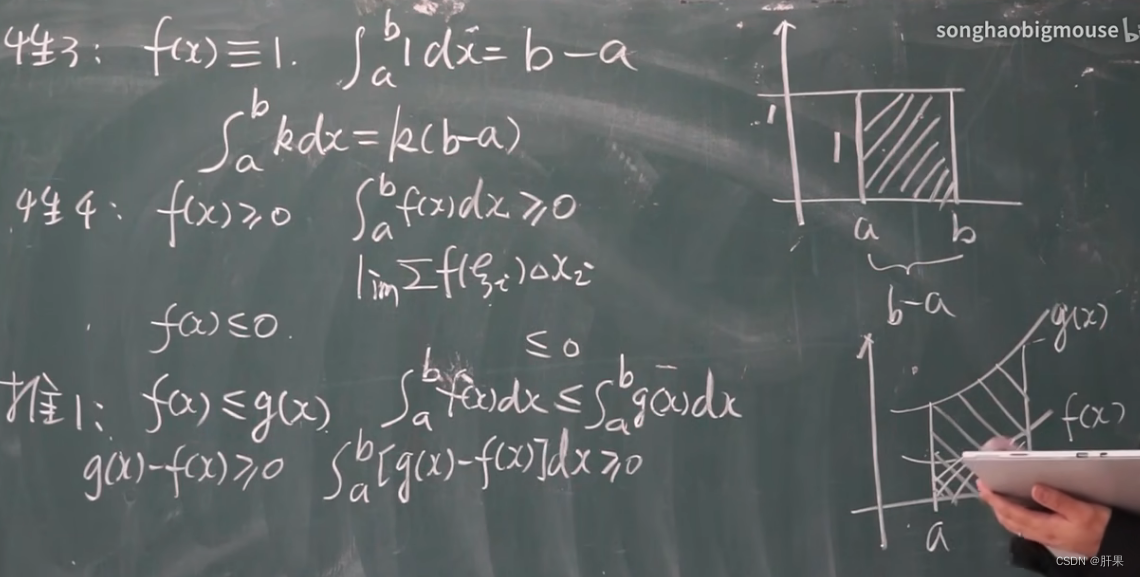 songhaobigmouse b
性3: f(x)≡1. ∫_a^b 1dx = b-a
∫_a^b kdx = k(b-a)
性4: f(x)≥0 ∫_a^b f(x)dx ≥0
lim Σf(ξi)Δxi
f(x)≤0. ≤0
推1: f(x)≤g(x) ∫_a^b f(x)dx ≤ ∫_a^b g(x)dx
g(x)-f(x)≥0 ∫_a^b [g(x)-f(x)]dx≥0
1
1
a b
b-a
g(x)
f(x)
a
CSDN @肝果